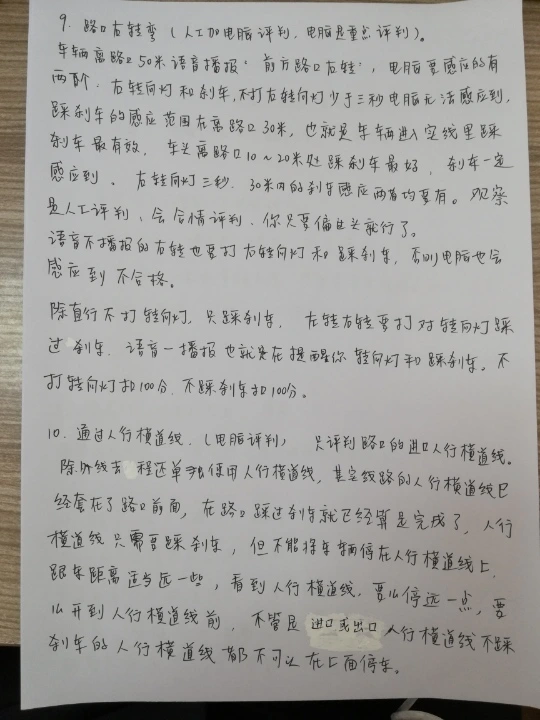 9. 路口右转弯(人工加电脑评判,电脑是重点评判)。
车辆离路口50米语音播报“前方路口右转”,电脑要感应的有
两个:右转向灯和刹车,不打右转向灯少于三秒电脑无法感应到,
踩刹车的感应范围在离路口30米,也就是车辆进入实线里踩
刹车最有效,车头离路口10~20米处踩刹车最好,刹车一定
感应到。右转向灯三秒,30米内的刹车感应两者均要有。观察
是人工评判,会合情评判,你只要偏过头就行了。
语音不播报的右转也要打右转向灯和踩刹车,否则电脑也会
感应到不合格。
除直行不打转向灯,只踩刹车,左转右转要打对转向灯踩
过刹车,语音一播报也就是在提醒你转向灯和踩刹车。不
打转向灯扣100分,不踩刹车扣100分。
10. 通过人行横道线.(电脑评判) 只评判路口的进口人行横道线。
除外线去程还单独使用人行横道线,其它线路的人行横道线已
经套在了路口前面,在路口踩过刹车就已经算是完成了,人行
横道线只需要踩刹车,但不能将车辆停在人行横道线上,
跟车距离适当远一些,看到人行横道线,要么停远一点,要
么开到人行横道线前,不管是进口或出口人行横道线不踩
刹车的人行横道线都不可以在上面停车。